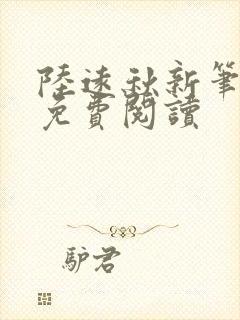 陸遠秋新筆
免費閱讀
驴君